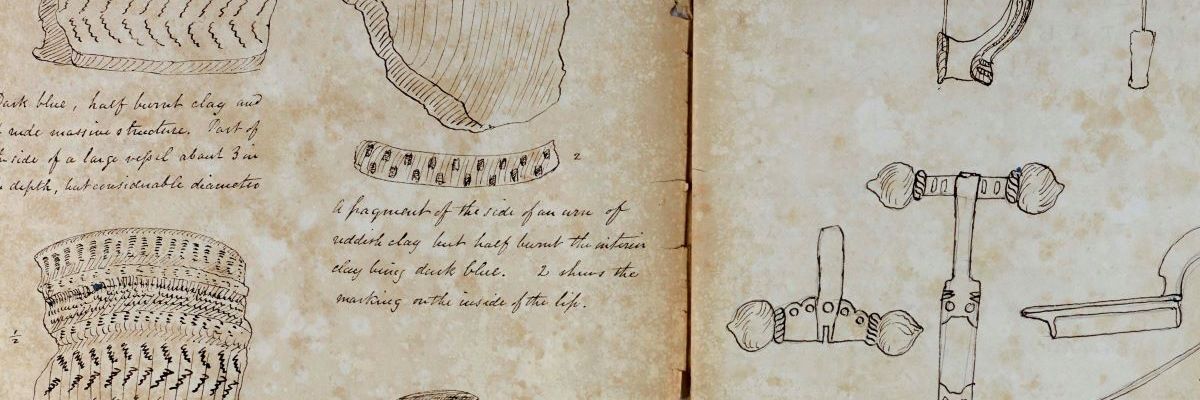 Dark blue, half burnt clay and
rude massive structure. Part of
side of a large vessel about 3 in
depth, but considerable diameter
1/2
2
A fragment of the side of an urn of
reddish clay but half burnt the interior
clay being dark blue. 2 shews the
marking on the inside of the lip.